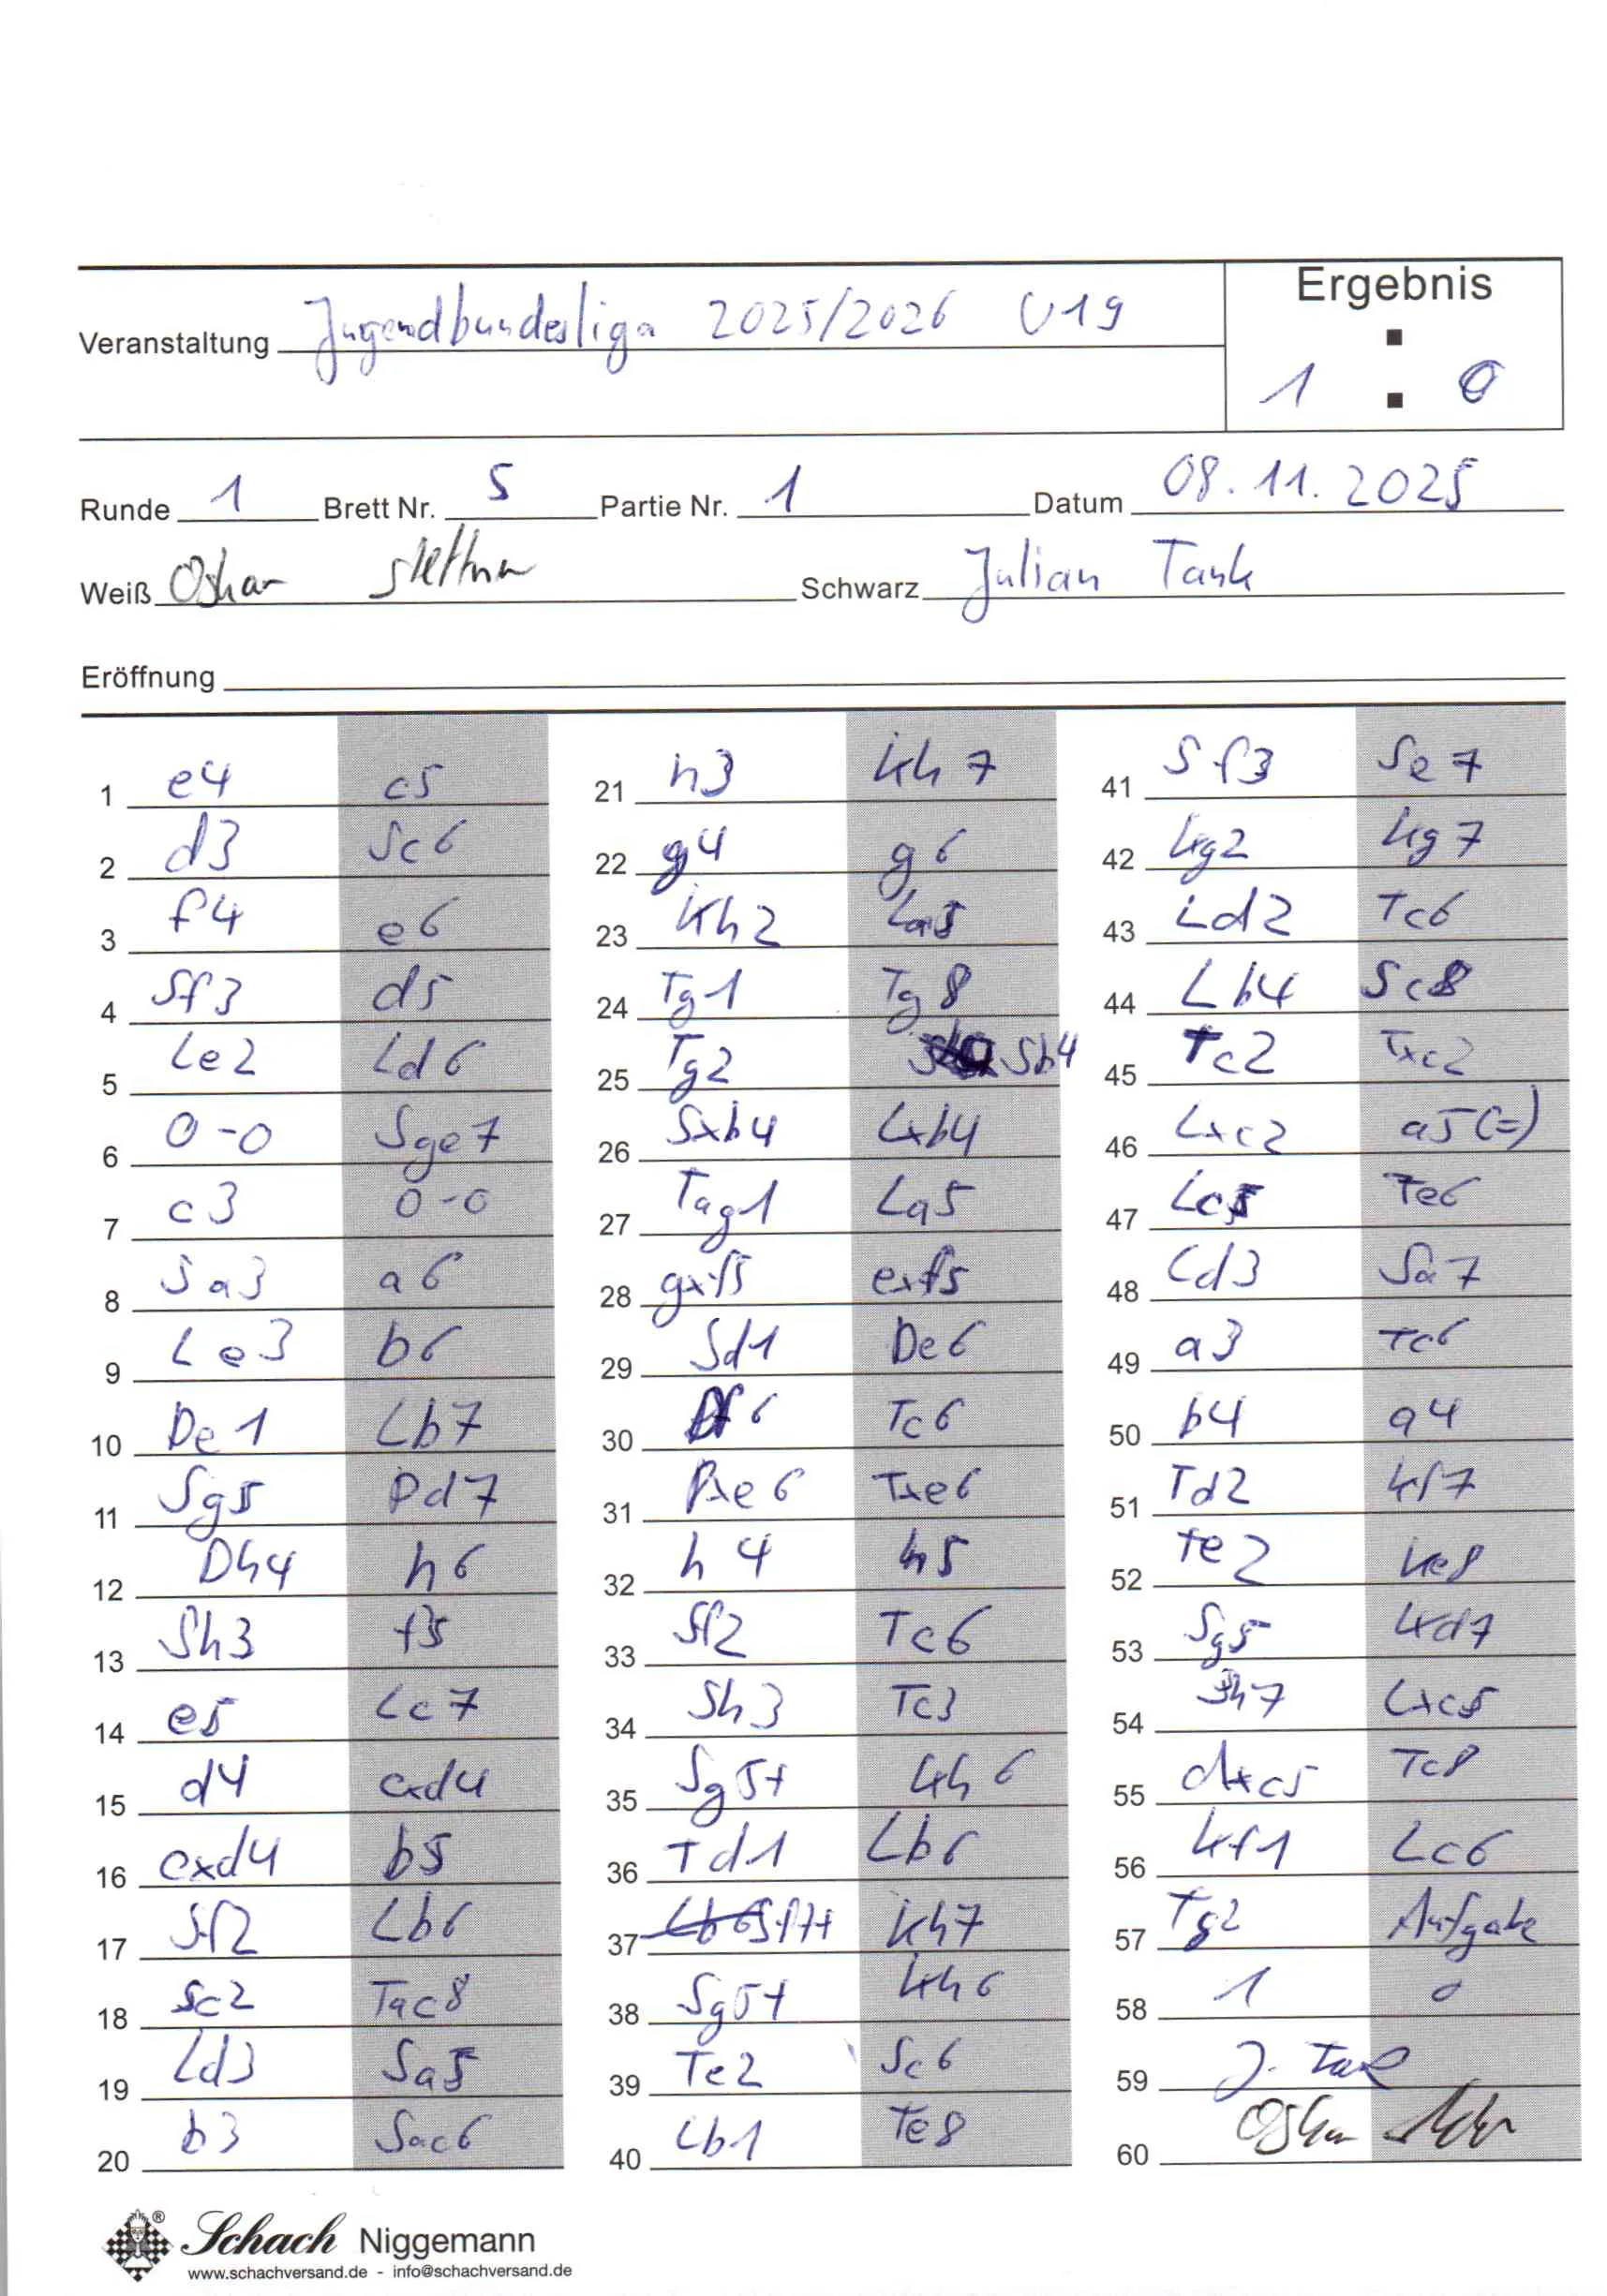 Ergebnis
Veranstaltung Jugendbundesliga 2025/2026 U19
1 : 0
Runde 1 Brett Nr. 5 Partie Nr. 1 Datum 08.11.2025
Weiß Oskar Schwarz Julian Tank
Eröffnung
1 e4 c5
2 d3 Sc6
3 f4 e6
4 Sf3 d5
5 Le2 Ld6
6 0-0 Sge7
7 c3 0-0
8 Sa3 a6
9 Le3 b6
10 De1 Lb7
11 Sg5 Dd7
12 Dh4 h6
13 Sh3 f5
14 e5 Lc7
15 d4 cxd4
16 cxd4 b5
17 Sf2 Lb6
18 Sc2 Tac8
19 Ld3 Sa5
20 b3 Sac6
21 h3 Kh7
22 g4 g6
23 Kh2 La5
24 Tg1 Tg8
25 Tg2 Sb4
26 Sxb4 Lxb4
27 Tag1 La5
28 gxf5 exf5
29 Sd1 De6
30 Df6 Tc6
31 Dxe6 Txe6
32 h4 h5
33 Sf2 Tc6
34 Sh3 Tc3
35 Sg5+ Kh6
36 Td1 Lb6
37 Sf7+ Kh7
38 Sg5+ Kh6
39 Te2 Sc6
40 Lb1 Te8
41 Sf3 Se7
42 Kg2 Kg7
43 Ld2 Tc6
44 Lb4 Sc8
45 Tc2 Txc2
46 Lxc2 a5(=)
47 Lc5 Te6
48 Ld3 Sa7
49 a3 Tc6
50 b4 a4
51 Td2 Kf7
52 Te2 Ke8
53 Sg5 Kd7
54 Sh7 Lxc5
55 dxc5 Tc8
56 Kf1 Lc6
57 Tg2 Aufgabe
58 1 0
59 J. Tank
60 Oskar
Schach Niggemann
®
www.schachversand.de - info@schachversand.de